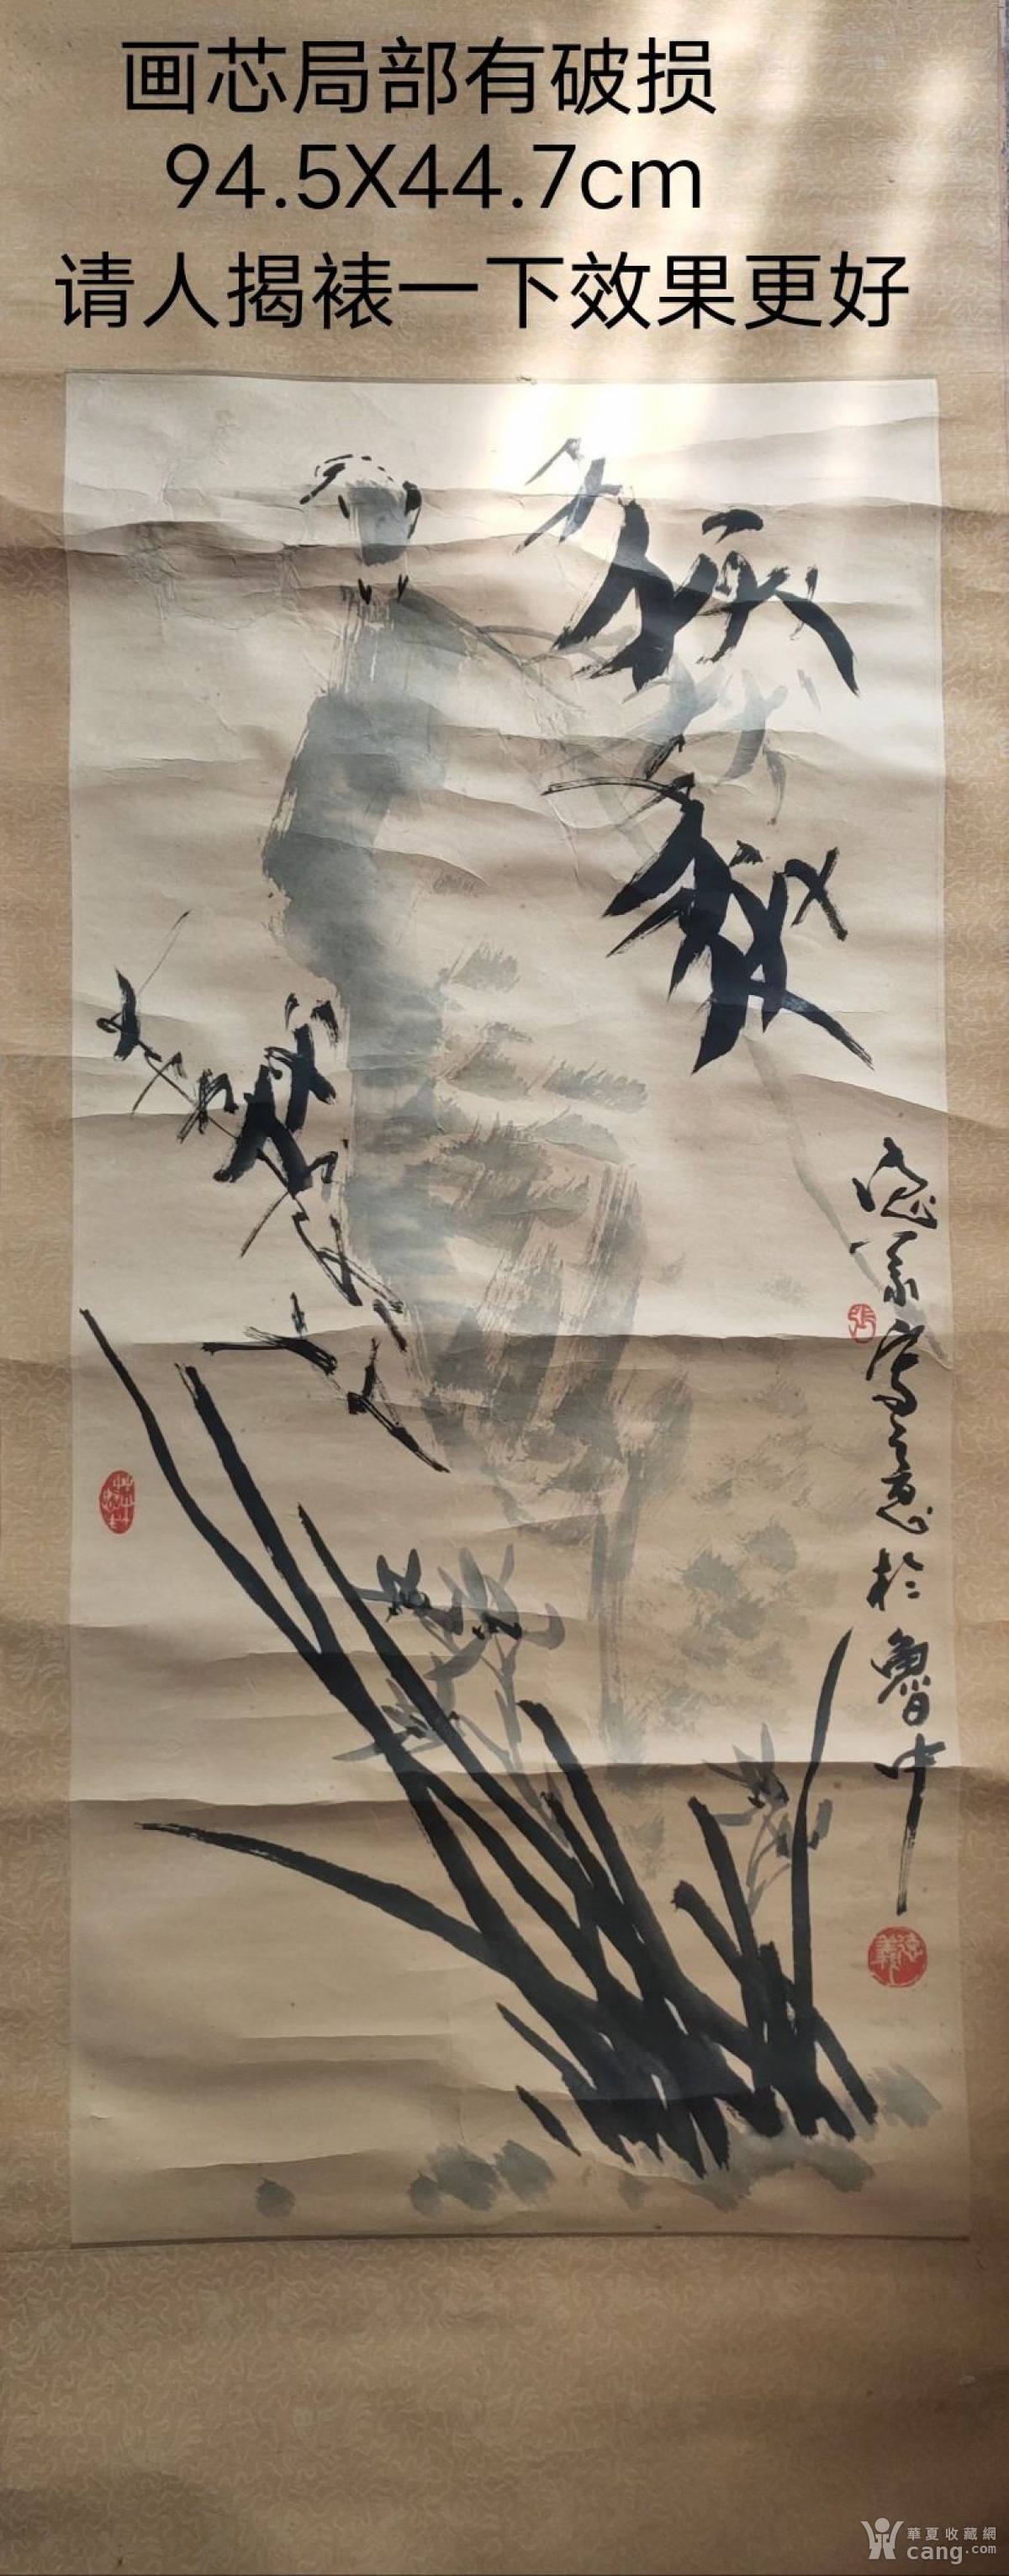 画芯局部有破损
94.5X44.7cm
请人揭裱一下效果更好
写意於魯中
張
華夏收藏網
cang.com